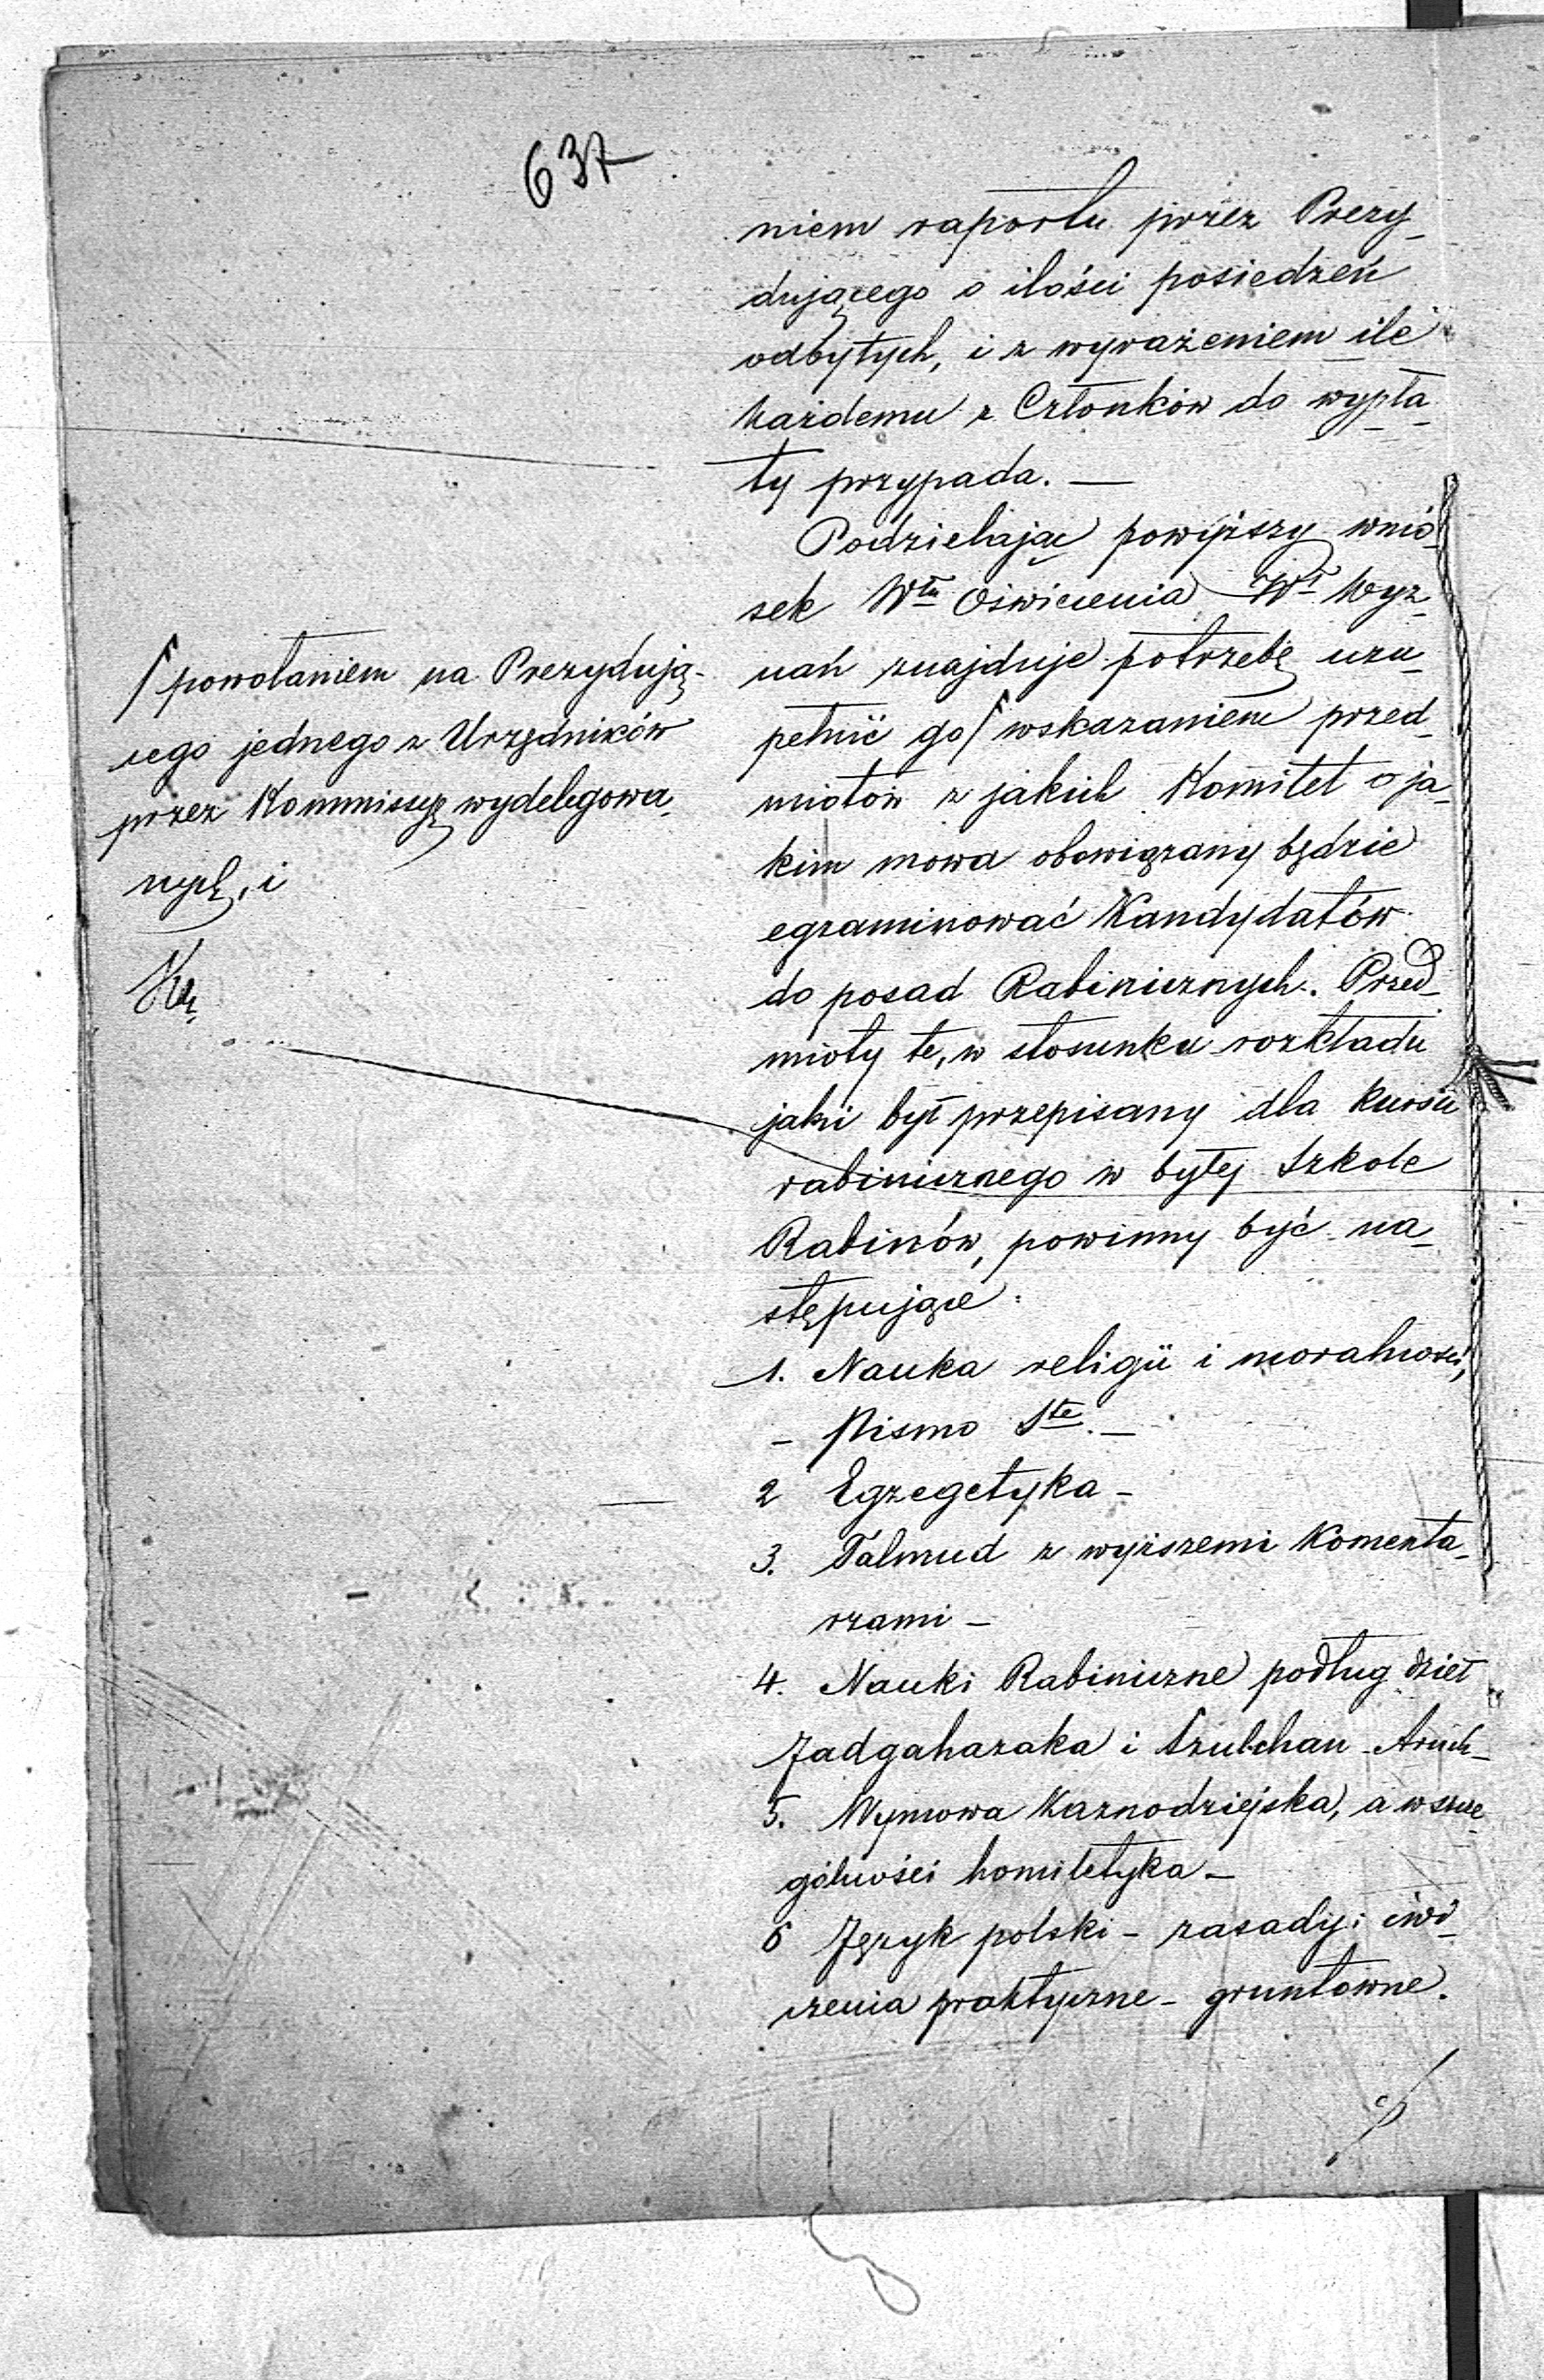 637
niem raportu przez Prezy-
dującego o ilości posiedzeń
odbytych, i z wyrażeniem ile
każdemu z Członków do wypła-
ty przypada. —
Podzielając powyższy wnio-
sek Włu Oświecenia Wł Wyz-
nań znajduje potrzebę uzu-
pełnić go ſ wskazaniem przed-
miotów z jakich Komitet o ja-
kim mowa obowiązany będzie
egzaminować Kandydatów
do posad Rabinicznych. Przed-
mioty te, w stosunku rozkładu
jaki był przepisany dla kursu
rabinicznego w byłej Szkole
Rabinów, powinny być na-
stępujące:
1. Nauka religii i moralności,
– Pismo Ste. —
2 Egzegetyka –
3. Talmud z wyższemi Komenta-
rzami –
4. Nauki Rabiniczne podług dzieł
Jadgahazaka i Szulchan-Aruch–
5. Wymowa Kaznodziejska, a w szcze-
gólności homiletyka –
6 Język polski – zasady i ćwi-
czenia praktyczne – gruntowne.
ſ powołaniem na Prezydują-
cego jednego z Urzędników
przez Kommissyę wydelegowa-
nych, i